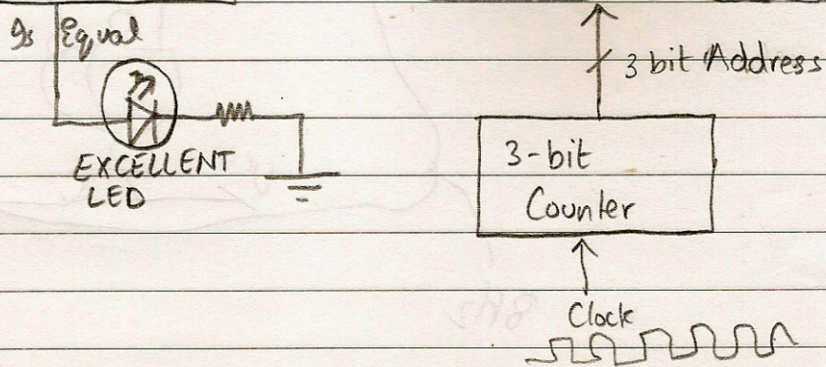 Is Equal
EXCELLENT
LED
3 bit Address
3-bit
Counter
Clock